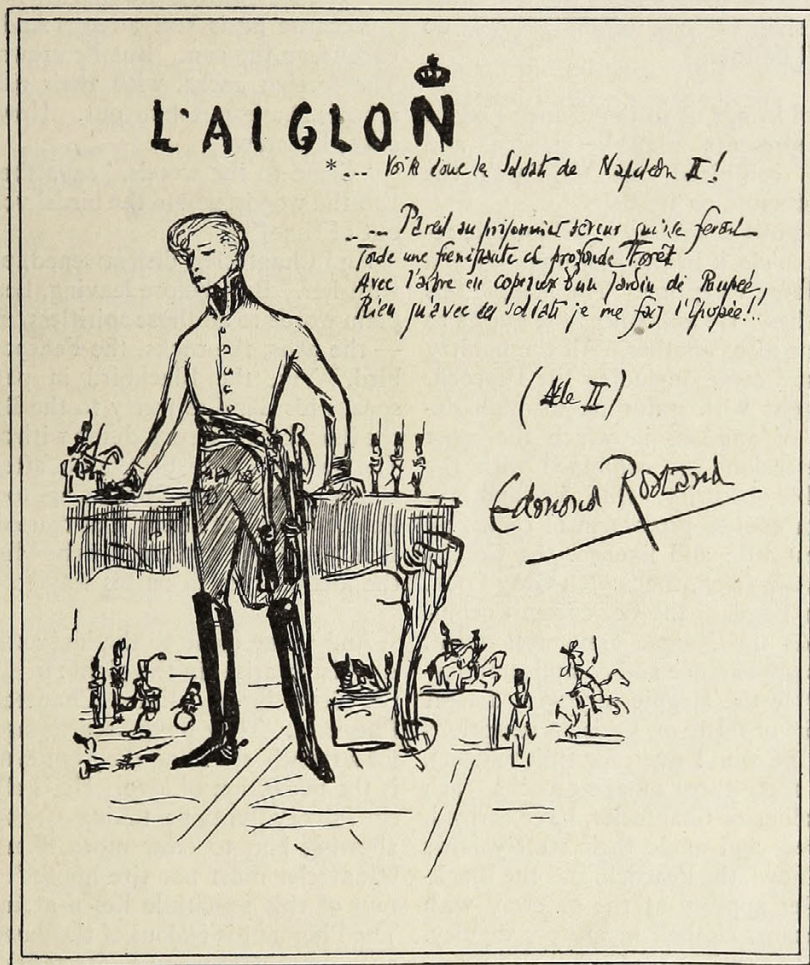 L'AIGLON
*... Voilà donc les Soldats de Napoléon II!
... Pareil au prisonnier rêveur qui se ferait
Toute une frémissante et profonde Forêt
Avec l'arbre en copeaux d'un jardin de Poupée,
Rien qu'avec ces soldats je me fais l'Épopée!!
(Acte II)
Edmond Rostand